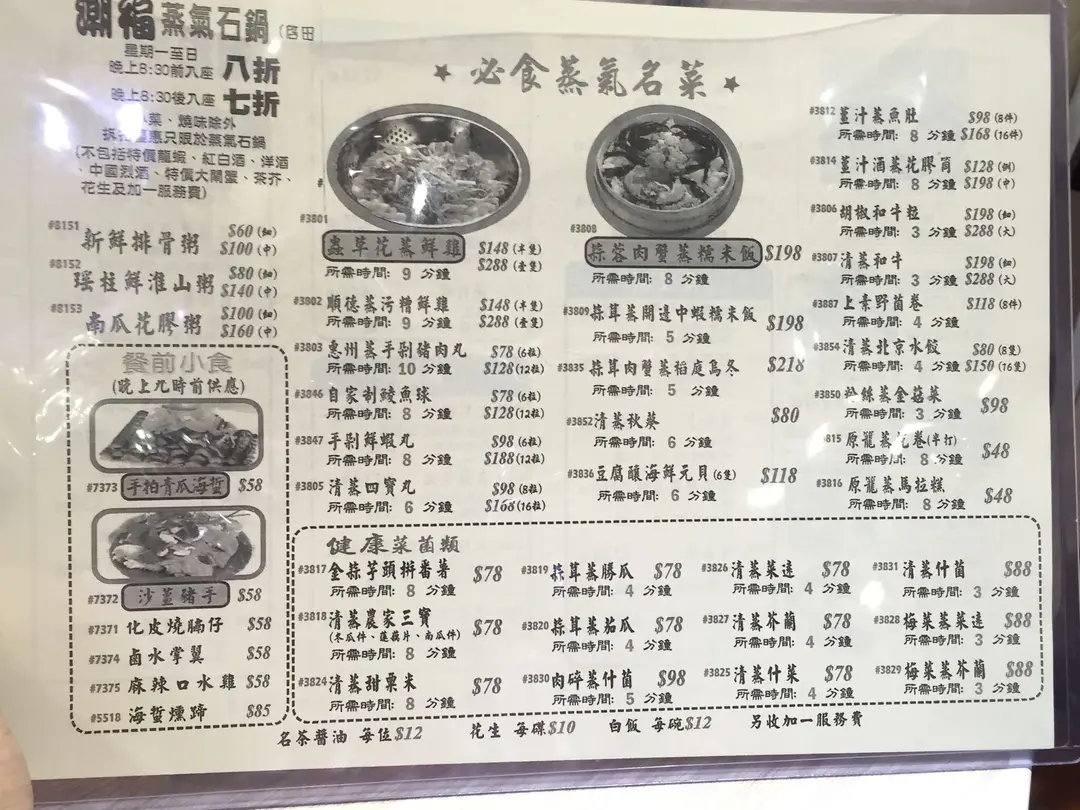 潮福 蒸氣石鍋 (啓田
星期一至日
晚上8:30前入座 八折
晚上8:30後入座 七折
菜、燒味除外
惠只限於蒸氣石鍋
(不包括特價龍蝦、紅白酒、洋酒
、中國烈酒、特價大閘蟹、茶芥、
花生及加一服務費)
#8151 新鮮排骨粥 $60 (細)
$100 (中)
#8152 瑤柱鮮淮山粥 $80 (細)
$140 (中)
#8153 南瓜花膠粥 $100 (細)
$160 (中)
餐前小食
(晚上九時前供應)
#7373 手拍青瓜海蜇 $58
#7372 沙薑豬手 $58
#7371 化皮燒腩仔 $58
#7374 鹵水掌翼 $58
#7375 麻辣口水雞 $58
#5518 海蜇燻蹄 $85
★ 必食蒸氣名菜 ★
#3801 蟲草花蒸鮮雞 $148 (半隻)
所需時間: 9 分鐘 $288 (壹隻)
#3802 順德蒸污糟鮮雞 $148 (半隻)
所需時間: 9 分鐘 $288 (壹隻)
#3803 惠州蒸手剁豬肉丸 $78 (6粒)
所需時間: 10 分鐘 $128 (12粒)
#3846 自家制鯪魚球 $78 (6粒)
所需時間: 8 分鐘 $128 (12粒)
#3847 手剁鮮蝦丸 $98 (6粒)
所需時間: 8 分鐘 $188 (12粒)
#3805 清蒸四寶丸 $98 (8粒)
所需時間: 6 分鐘 $168 (16粒)
#3808 蒜蓉肉蟹蒸糯米飯 $198
所需時間: 8 分鐘
#3809 蒜茸蒸開邊中蝦糯米飯 $198
所需時間: 5 分鐘
#3835 蒜茸肉蟹蒸稻庭烏冬 $218
所需時間: 5 分鐘
#3852 清蒸秋葵 $80
所需時間: 6 分鐘
#3836 豆腐釀海鮮元貝 (6隻) $118
所需時間: 6 分鐘
#3812 薑汁蒸魚肚 $98 (8件)
所需時間: 8 分鐘 $168 (16件)
#3814 薑汁酒蒸花膠筒 $128 (例)
所需時間: 8 分鐘 $198 (中)
#3806 胡椒和牛粒 $198 (細)
所需時間: 3 分鐘 $288 (大)
#3807 清蒸和牛 $198 (細)
所需時間: 3 分鐘 $288 (大)
#3887 上素野菌卷 $118 (8件)
所需時間: 4 分鐘
#3854 清蒸北京水餃 $80 (8隻)
所需時間: 4 分鐘 $150 (16隻)
#3850 粉絲蒸金菇菜 $98
所需時間: 3 分鐘
815 原籠蒸 卷(半打) $48
所需時間: 8 分鐘
#3816 原籠蒸馬拉糕 $48
所需時間: 8 分鐘
健康菜菌類
#3817 金蒜芋頭拼番薯 $78
所需時間: 8 分鐘
#3818 清蒸農家三寶 $78
(冬瓜件、蓮藕片、南瓜件)
所需時間: 8 分鐘
#3824 清蒸甜粟米 $78
所需時間: 8 分鐘
#3819 蒜茸蒸勝瓜 $78
所需時間: 4 分鐘
#3820 蒜茸蒸茄瓜 $78
所需時間: 4 分鐘
#3830 肉碎蒸什菌 $98
所需時間: 5 分鐘
#3826 清蒸菜遠 $78
所需時間: 4 分鐘
#3827 清蒸芥蘭 $78
所需時間: 4 分鐘
#3825 清蒸什菜 $78
所需時間: 4 分鐘
#3831 清蒸什菌 $88
所需時間: 3 分鐘
#3828 梅菜蒸菜遠 $88
所需時間: 3 分鐘
#3829 梅菜蒸芥蘭 $88
所需時間: 3 分鐘
名茶醬油 每位$12 花生 每碟$10 白飯 每碗$12 另收加一服務費